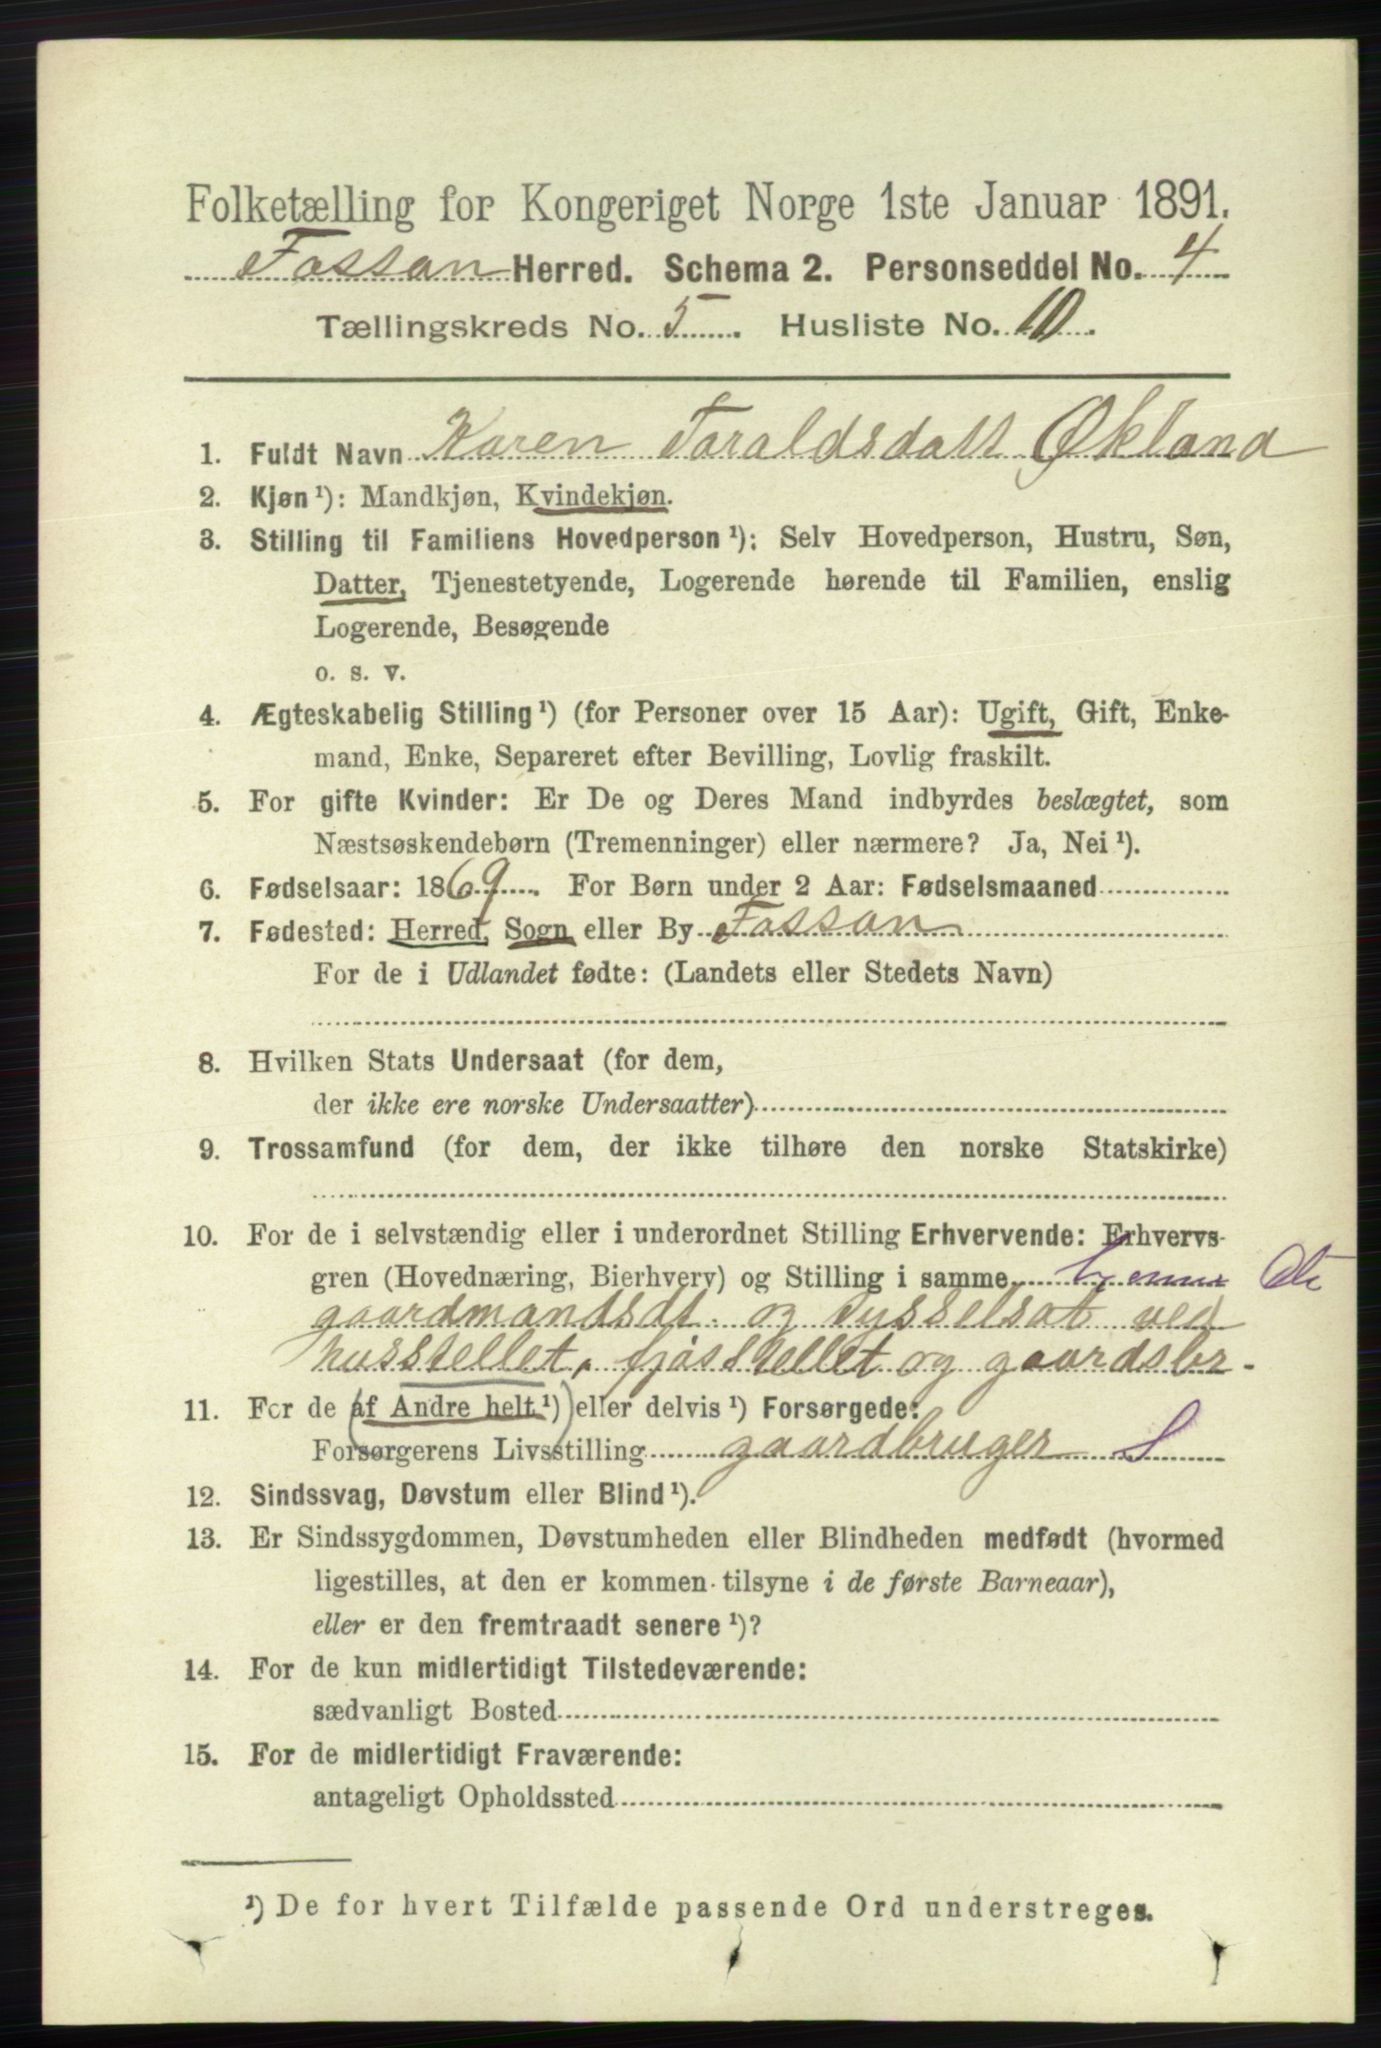 Folketælling for Kongeriget Norge 1ste Januar 1891.
Fossan Herred. Schema 2. Personseddel No. 4
Tællingskreds No. 5. Husliste No. 10.
1. Fuldt Navn Karen Taraldsdatt Økland
2. Kjøn ¹): Mandkjøn, Kvindekjøn.
3. Stilling til Familiens Hovedperson ¹): Selv Hovedperson, Hustru, Søn,
Datter, Tjenestetyende, Logerende hørende til Familien, enslig
Logerende, Besøgende
o. s. v.
4. Ægteskabelig Stilling ¹) (for Personer over 15 Aar): Ugift, Gift, Enke-
mand, Enke, Separeret efter Bevilling, Lovlig fraskilt.
5. For gifte Kvinder: Er De og Deres Mand indbyrdes beslægtet, som
Næstsøskendebørn (Tremenninger) eller nærmere? Ja, Nei ¹).
6. Fødselsaar: 1869. For Børn under 2 Aar: Fødselsmaaned
7. Fødested: Herred, Sogn eller By Fossan
For de i Udlandet fødte: (Landets eller Stedets Navn)
8. Hvilken Stats Undersaat (for dem,
der ikke ere norske Undersaatter)
9. Trossamfund (for dem, der ikke tilhøre den norske Statskirke)
10. For de i selvstændig eller i underordnet Stilling Erhvervende: Erhvervs-
gren (Hovednæring, Bierhverv) og Stilling i samme
gaardmandsdt. og sysselsat ved
husstellet, fjøsstellet og gaardsbr-
11. For de (af Andre helt ¹) eller delvis ¹) Forsørgede:
Forsørgerens Livsstilling gaardbruger S
12. Sindssvag, Døvstum eller Blind ¹).
13. Er Sindssygdommen, Døvstumheden eller Blindheden medfødt (hvormed
ligestilles, at den er kommen tilsyne i de første Barneaar),
eller er den fremtraadt senere ¹)?
14. For de kun midlertidigt Tilstedeværende:
sædvanligt Bosted
15. For de midlertidigt Fraværende:
antageligt Opholdssted
¹) De for hvert Tilfælde passende Ord understreges.